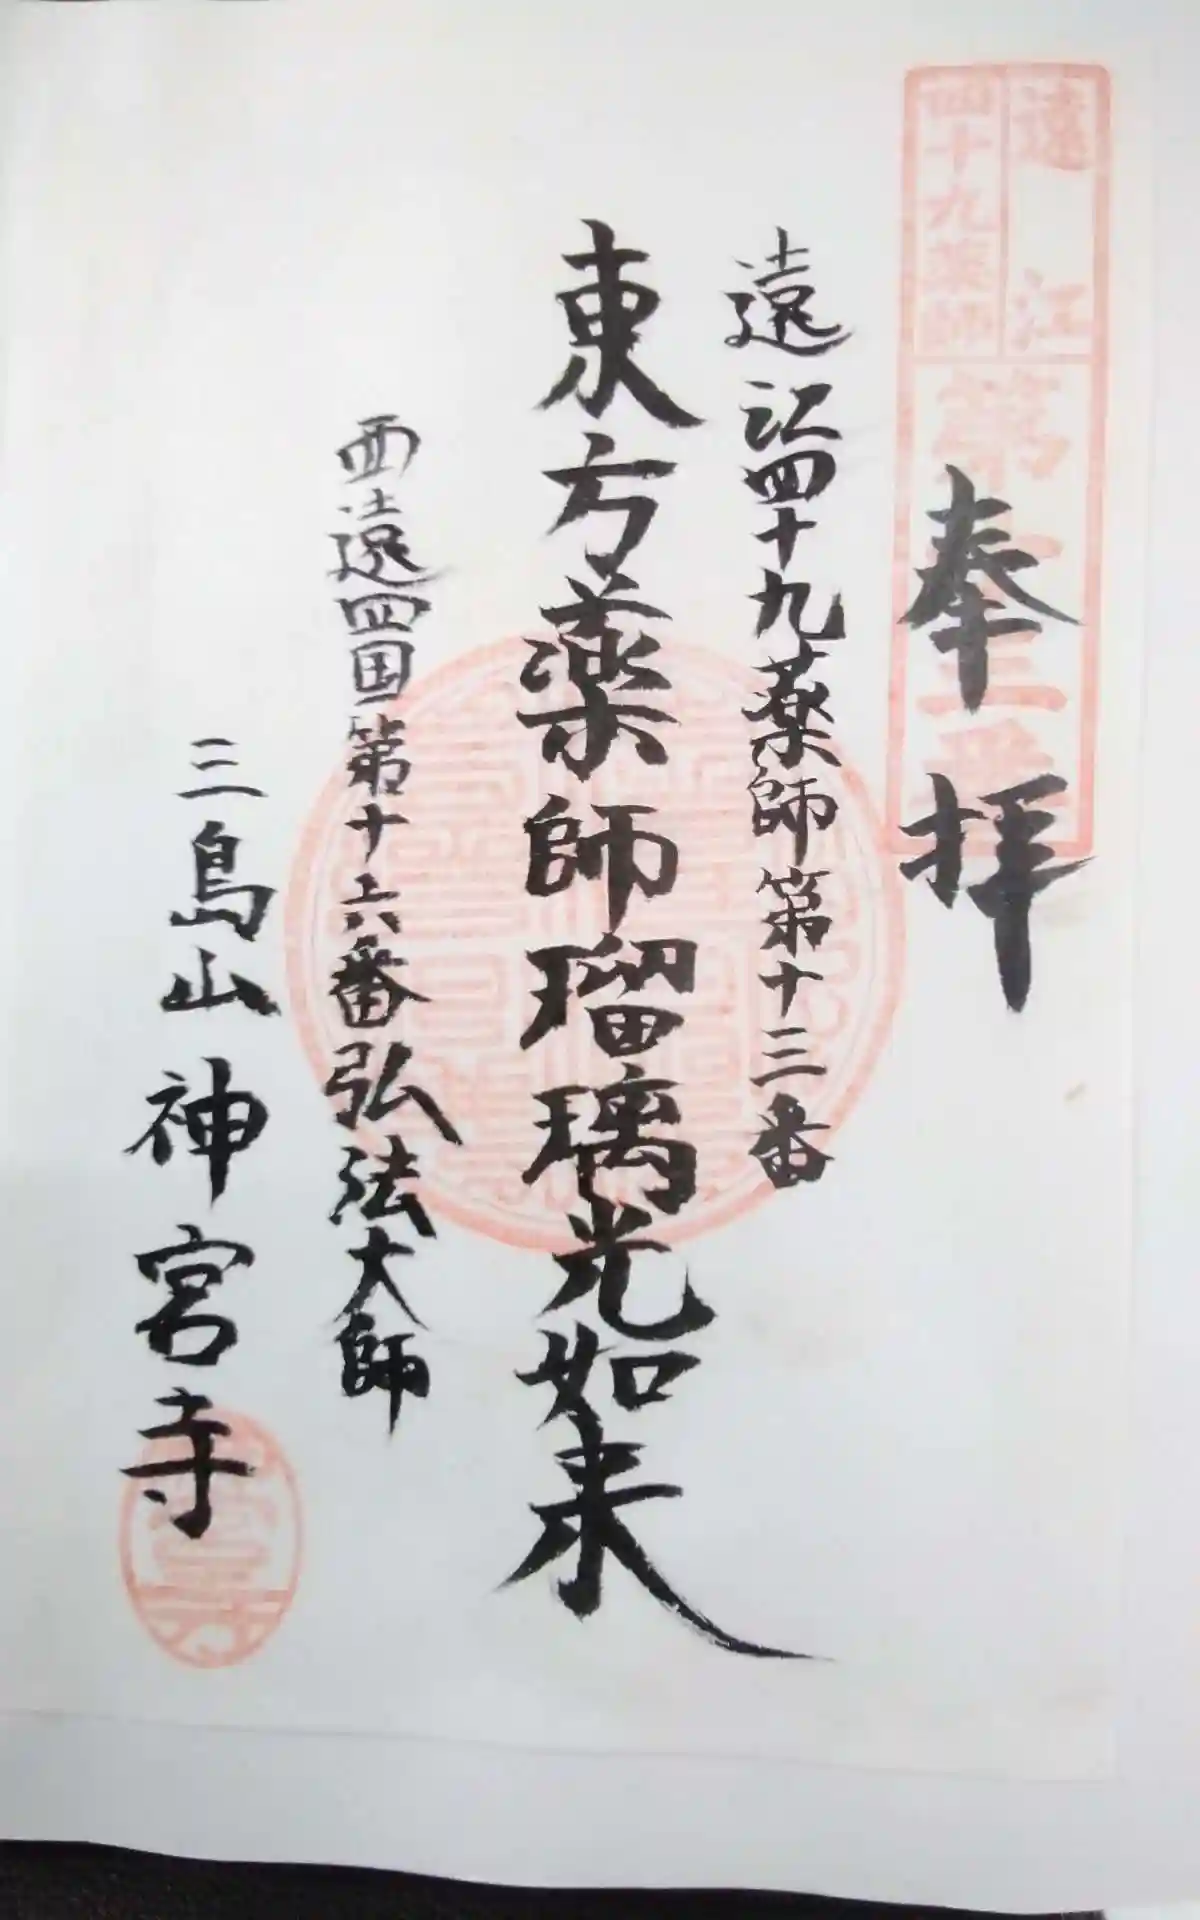 遠江
四十九薬師
第十三番
奉拝
遠江四十九薬師第十三番
東方薬師瑠璃光如来
西遠四国第十六番弘法大師
三島山神宮寺